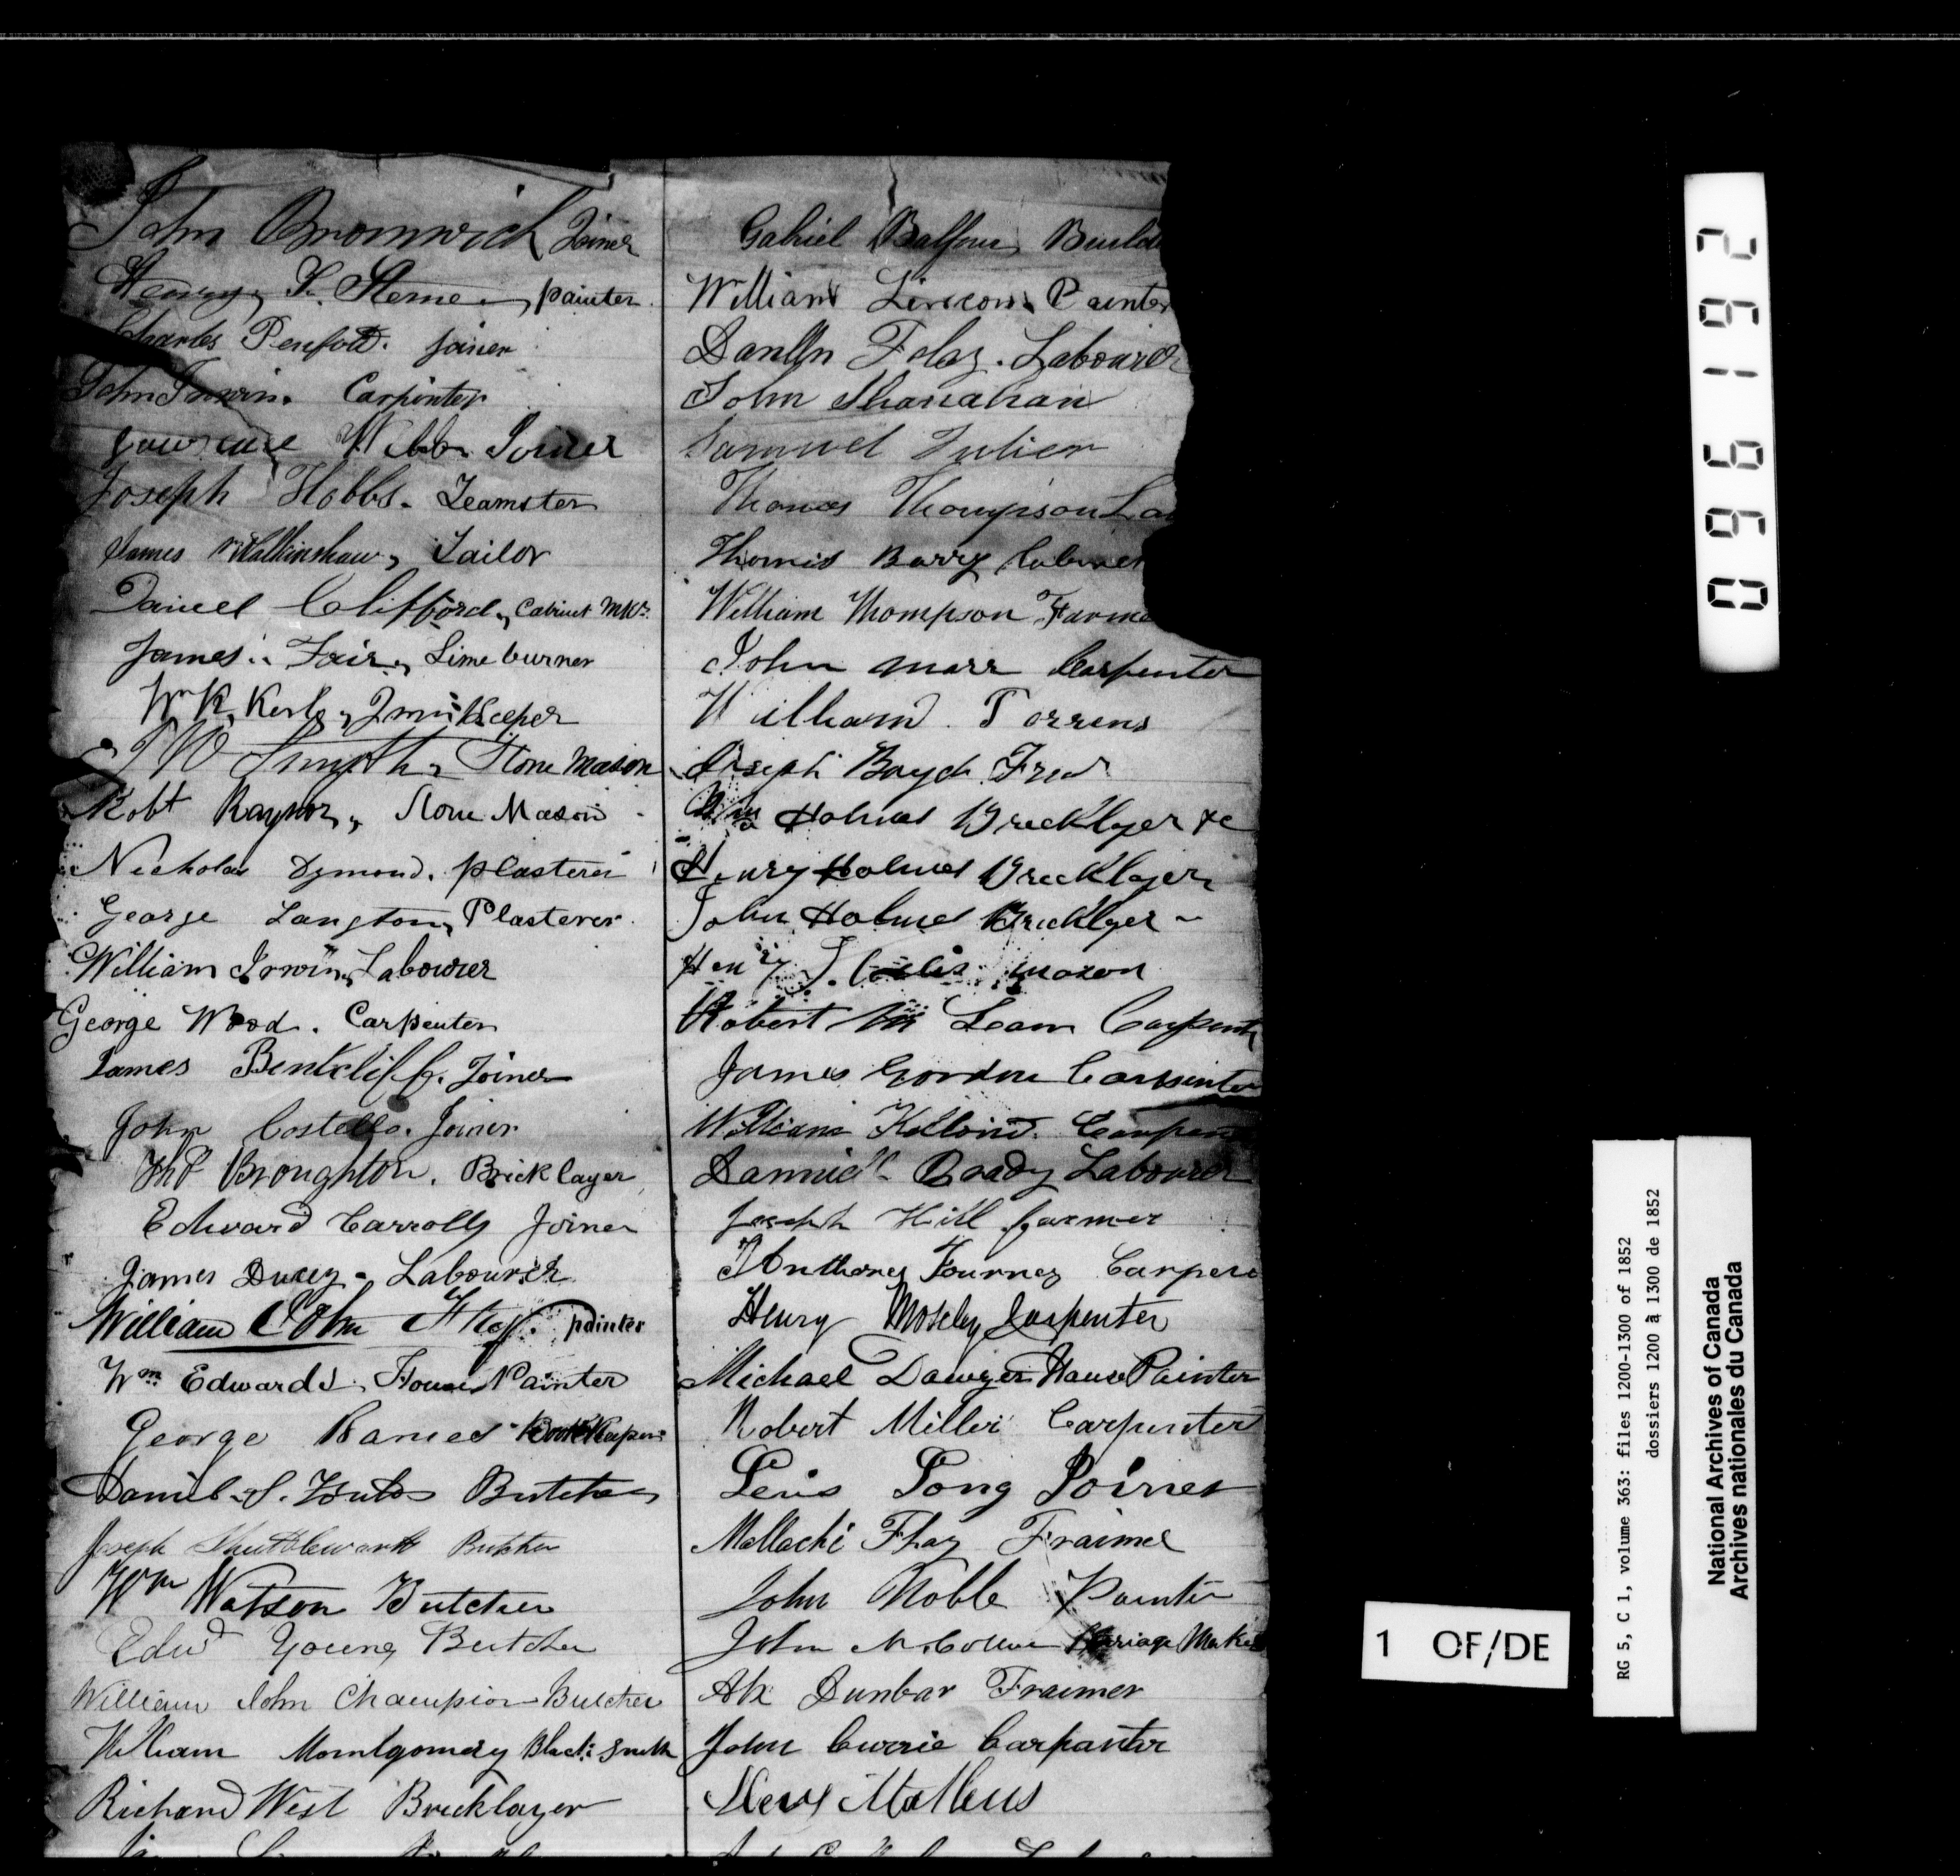 John Bromwich Joiner
Henry painter
Charles Penfold. joiner
John Irwin. Carpinter
Lawrence Webb Joiner
Joseph Hobbs. Teamster
James Walkinshaw, Tailor
Daniel Clifford, Cabinet Mkr.
James Fair, Lime burner
Wm K. Kerby, Innkeeper
Smyth, Stone Mason
Robt Raynor, Stone Mason
Nicholas Dymond. plasterer
George Langton, Plasterer
William Irwin, Labourer
George Wood. Carpenter
James Bentcliff. Joiner
John Costello. Joiner
Thos Broughton. Bricklayer
Edward Carrolly Joiner
James Ducey - Labourer
William John painter
Wm Edwards. House Painter
George Barnes Bookkeeper
Daniel S. Butcher
Joseph Shuttleworth Butcher
Wm Watson Butcher
Edwd Young Butcher
William John Champion Butcher
William Momtgomery Black Smith
Richard West Bricklayer
Gabriel Balfour Build
William Painter
Folaz. Labourer
John Shanahan
Samuel Julien
Thomas Thompson La
Thomis Barry Cabinet
William Thompson Farme
John Marr Carpenter
William Torrens
Joseph Boyd
Wm Holmes Brecklyer &c
Henry Holmes Brecklayer
John Holmes Bricklyer
Henry J. mason
Robert Mc Lean Carpent
James Gordon Carpinter
William Carpen
Danniel Brady Labourer
Joseph Hill farmer
Anthoney Tourney Carpen
Henry Moseley Carpenter
Michael Dawyer House Painter
Robert Miller Carpenter
Long Joiner
Mallachi Fhay Fraimer
John Noble Painter
John Carriage Maker
Alx Dunbar Fraimer
John Currie Carpanter
Matheus
0961192
1 OF/DE
RG 5, C 1, volume 363: files 1200-1300 of 1852
dossiers 1200 à 1300 de 1852
National Archives of Canada
Archives nationales du Canada